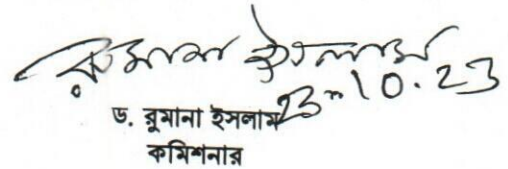 রুমানা ইসলাম
23.10.23
ড. রুমানা ইসলাম
কমিশনার